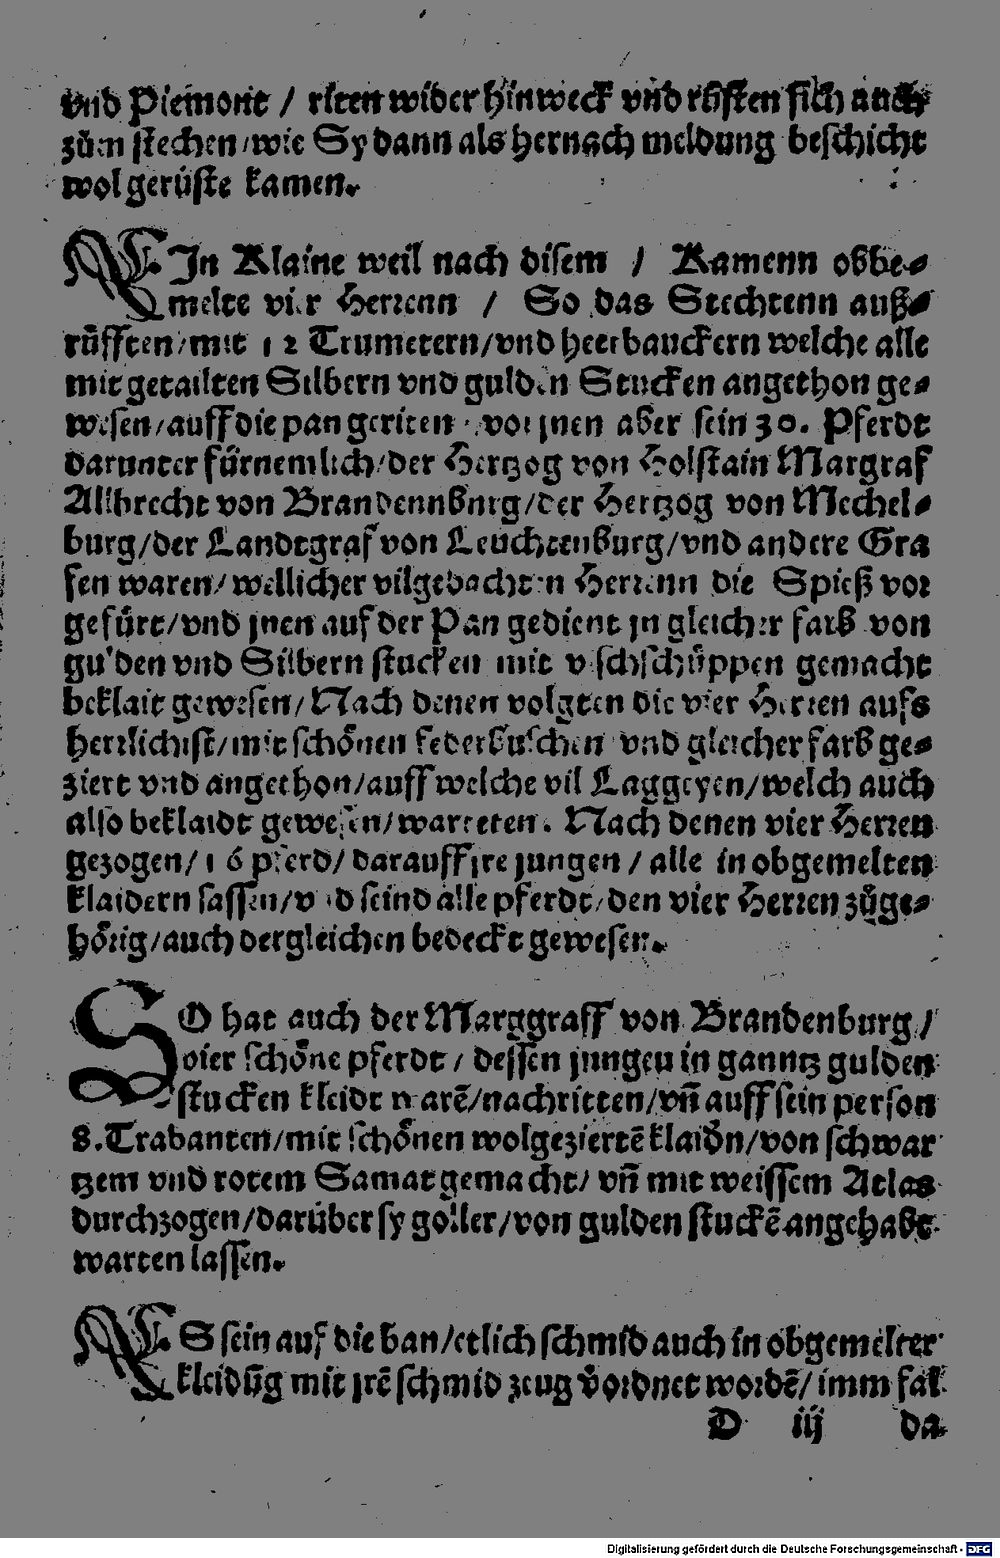 vnd Piemont / riten wider hinweck vnd rüsten sich auch
zům stechen / wie Sy dann als hernach meldung beschicht
wol gerüste kamen.
EIn Klaine weil nach disem / Kamenn obbe-
melte vier Herrenn / So das Stechtenn auß-
růfften / mit 12 Trumetern / vnd heerbauckern welche alle
mit getailten Silbern vnd gulden Stucken angethon ge-
wesen / auff die pan geriten / vor jnen aber sein 30. Pferdt
darunter fürnemlich / der Hertzog von Holstain Margraf
Allbrecht von Brandennburg / der Hertzog von Mechel-
burg / der Landtgraf von Leuchtenburg / vnd andere Gra
fen waren / wellicher vilgedachten Herrenn die Spieß vor
gefürt / vnd jnen auf der Pan gedient jn gleicher farb von
gulden vnd Silbern stucken mit vischschüppen gemacht
beklait gewesen / Nach denen volgten die vier Herren aufs
herrlichist / mit schönen federbuschen vnd gleicher farb ge-
ziert vnd angethon / auff welche vil Laggeyen / welch auch
also beklaidt gewesen / warteten. Nach denen vier Herren
gezogen / 16 pferd / darauff jre jungen / alle in obgemelten
klaidern sassen / vnd seind alle pferdt / den vier Herren zůge-
hörig / auch dergleichen bedeckt gewesen.
SO hat auch der Marggraff von Brandenburg /
vier schöne pferdt / dessen jungen in ganntz gulden
stucken kleidt warē / nachritten / vñ auff sein person
8. Trabanten / mit schönen wolgeziertē klaidn / von schwar
tzem vnd rotem Samat gemacht / vñ mit weissem Atlas
durchzogen / darüber sy goller / von gulden stuckē angehabt
warten lassen.
ES sein auf die ban / etlich schmid auch in obgemelter
kleidūg mit jrē schmid zeug v̊ordnet wordē / imm fal
D iij da
Digitalisierung gefördert durch die Deutsche Forschungsgemeinschaft - DFG